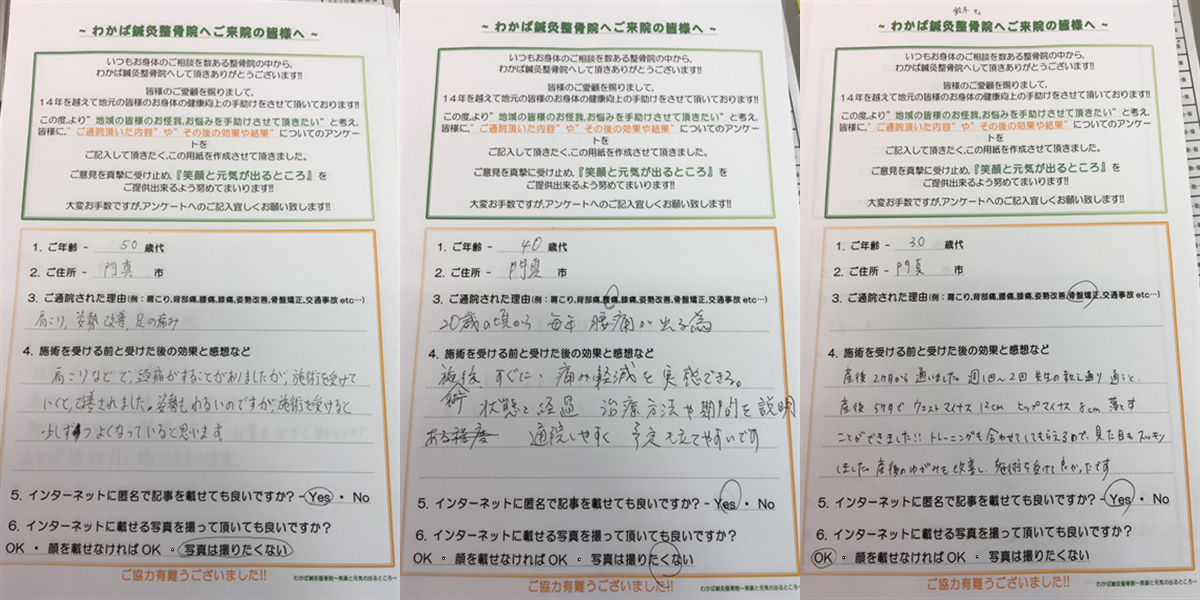 ~ わかば鍼灸整骨院へご来院の皆様へ ~
いつもお身体のご相談を数ある整骨院の中から,
わかば鍼灸整骨院へして頂きありがとうございます!!
皆様のご愛顧を賜りまして,
14年を越えて地元の皆様のお身体の健康向上の手助けをさせて頂いております!!
この度,より"地域の皆様のお怪我,お悩みを手助けさせて頂きたい"と考え,
皆様に,"ご通院頂いた内容"や"その後の効果や結果"についてのアンケー
トを
ご記入して頂きたく,この用紙を作成させて頂きました。
ご意見を真摯に受け止め,『笑顔と元気が出るところ』を
ご提供出来るよう努めてまいります!!
大変お手数ですが,アンケートへのご記入宜しくお願い致します!!
1. ご年齢 - 50 歳代
2. ご住所 - 門真 市
3. ご通院された理由(例:肩こり,背部痛,腰痛,膝痛,姿勢改善,骨盤矯正,交通事故etc…)
肩こり, 姿勢改善, 足の痛み
4. 施術を受ける前と受けた後の効果と感想など
肩こりなどで、頭痛がすることがありましたが、施術を受けて
いくと、改善されました。姿勢もわるいのですが施術を受けると
少しずつよくなっていると思います
5. インターネットに匿名で記事を載せても良いですか? - Yes ・ No
6. インターネットに載せる写真を撮って頂いても良いですか?
OK ・ 顔を載せなければOK ・ 写真は撮りたくない
ご協力有難うございました!!
わかば鍼灸整骨院~笑顔と元気の出るところ~
~ わかば鍼灸整骨院へご来院の皆様へ ~
いつもお身体のご相談を数ある整骨院の中から,
わかば鍼灸整骨院へして頂きありがとうございます!!
皆様のご愛顧を賜りまして,
14年を越えて地元の皆様のお身体の健康向上の手助けをさせて頂いております!!
この度,より"地域の皆様のお怪我,お悩みを手助けさせて頂きたい"と考え,
皆様に,"ご通院頂いた内容"や"その後の効果や結果"についてのアンケー
トを
ご記入して頂きたく,この用紙を作成させて頂きました。
ご意見を真摯に受け止め,『笑顔と元気が出るところ』を
ご提供出来るよう努めてまいります!!
大変お手数ですが,アンケートへのご記入宜しくお願い致します!!
1. ご年齢 - 40 歳代
2. ご住所 - 門真 市
3. ご通院された理由(例:肩こり,背部痛,腰痛,膝痛,姿勢改善,骨盤矯正,交通事故etc…)
20歳の頃から 毎年 腰痛が出る為
4. 施術を受ける前と受けた後の効果と感想など
施術後 すぐに、痛み軽減を実感できる。
状態と経過 治療方法や期間を説明
ある程度 通院しやすく 予定も立てやすいです
5. インターネットに匿名で記事を載せても良いですか? - Yes ・ No
6. インターネットに載せる写真を撮って頂いても良いですか?
OK ・ 顔を載せなければOK ・ 写真は撮りたくない
ご協力有難うございました!!
わかば鍼灸整骨院~笑顔と元気の出るところ~
鈴木
~ わかば鍼灸整骨院へご来院の皆様へ ~
いつもお身体のご相談を数ある整骨院の中から,
わかば鍼灸整骨院へして頂きありがとうございます!!
皆様のご愛顧を賜りまして,
14年を越えて地元の皆様のお身体の健康向上の手助けをさせて頂いております!!
この度,より"地域の皆様のお怪我,お悩みを手助けさせて頂きたい"と考え,
皆様に,"ご通院頂いた内容"や"その後の効果や結果"についてのアンケー
トを
ご記入して頂きたく,この用紙を作成させて頂きました。
ご意見を真摯に受け止め,『笑顔と元気が出るところ』を
ご提供出来るよう努めてまいります!!
大変お手数ですが,アンケートへのご記入宜しくお願い致します!!
1. ご年齢 - 30 歳代
2. ご住所 - 門真 市
3. ご通院された理由(例:肩こり,背部痛,腰痛,膝痛,姿勢改善,骨盤矯正,交通事故etc…)
4. 施術を受ける前と受けた後の効果と感想など
産後2カ月から通いました 週1回~2回 先生の教え通り 通うと、
産後5ヶ月で ウエストマイナス12cm ヒップマイナス8cm 落とす
ことができました!! トレーニングも合わせてしてもらえるので、見た目もスッキリ
しました 産後のゆがみも改善し、施術を受けて良かったです
5. インターネットに匿名で記事を載せても良いですか? - Yes ・ No
6. インターネットに載せる写真を撮って頂いても良いですか?
OK ・ 顔を載せなければOK ・ 写真は撮りたくない
ご協力有難うございました!!
わかば鍼灸整骨院~笑顔と元気の出るところ~